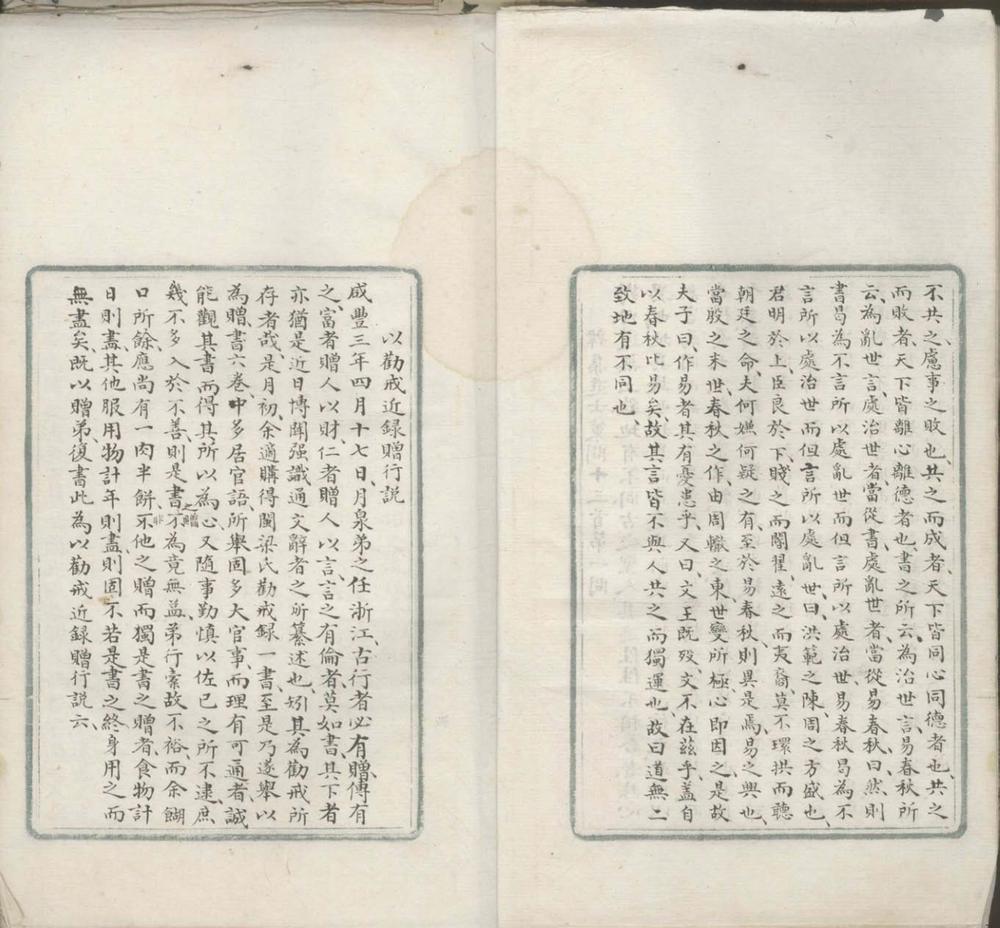 不共之、慮事之敗也、共之而成者、天下皆同心同德者也、共之
而敗者、天下皆離心離德者也、書之所云、為治世言、易春秋所
云、為亂世言、處治世者、當從書、處亂世者、當從易春秋、曰、然則
書曷為不言所以處亂世而但言所以處治世、易春秋曷為不
言所以處治世而但言所以處亂世、曰、洪範之陳周之方盛也、
君明於上、臣良於下、賤之而閽翟、遠之而夷裔、莫不環拱而聽
朝廷之命、夫何嫌何疑之有、至於易春秋、則異是焉、易之興也、
當殷之末世、春秋之作由周轍之東、世變所極、心即因之、是故
夫子曰、作易者其有憂患乎、又曰、文王既歿、文不在茲乎、蓋自
以春秋比易矣、故其言皆不與人共之而獨運也、故曰道無二
致、地有不同也、
以勸戒近録贈行説
咸豐三年四月十七日、月泉弟之任浙江、古行者必有贈、傳有
之、富者贈人以財、仁者贈人以言、言之有倫者、莫如書、其下者
亦猶是近日博聞强識通文辭者之所纂述也、矧其為勸戒所
存者哉、是月初、余適購得閩梁氏勸戒録一書、至是乃遂舉以
為贈、書六卷、中多居官語、所舉固多大官事、而理有可通者、誠
能觀其書而得其所以為心、又隨事勤慎以佐己之所不逮、庶
幾不多入於不善、則是書之贈非不為竟無益、弟行橐故不裕、而余餬
口所餘、應尚有一肉半餅、不他之贈而獨是書之贈者、食物計
日則盡、其他服用物計年則盡、則固不若是書之終身用之而
無盡矣、既以贈弟、復書此為以勸戒近録贈行説六、